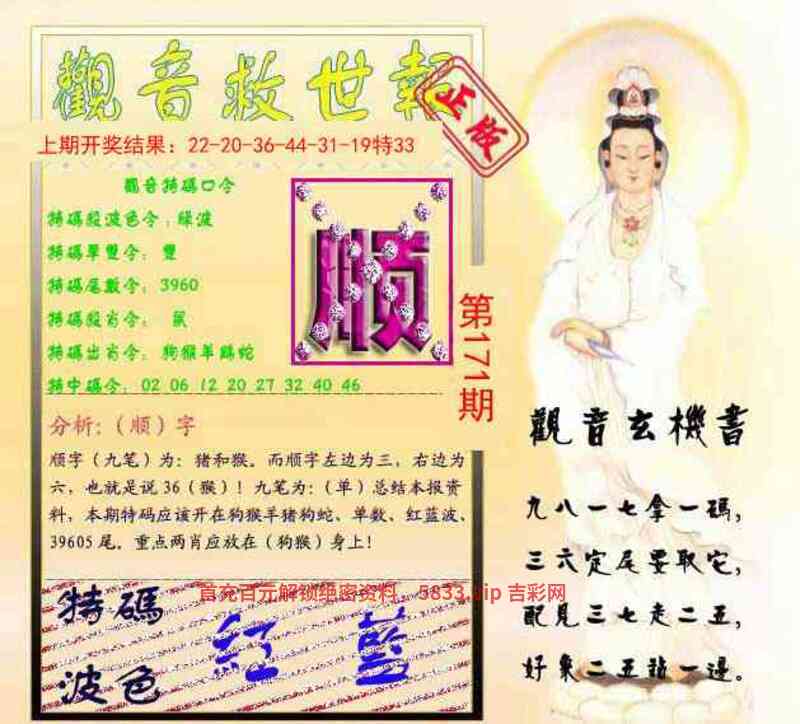 觀音救世報
正版
上期开奖结果：22-20-36-44-31-19特33
觀音特碼口令
特碼殺波色令：綠波
特碼單雙令：雙
特碼尾數令：3960
特碼殺肖令：鼠
特碼出肖令：狗猴羊鷄蛇
特中碼令：02 06 12 20 27 32 40 46
顺
第171期
分析:（顺）字
顺字（九笔）为：猪和猴。而顺字左边为三，右边为
六，也就是说36（猴）！九笔为：（单）总结本报资
料，本期特码应该开在狗猴羊猪狗蛇、单数、红蓝波、
39605尾。重点两肖应放在（狗猴）身上！
首充百元解锁绝密资料，5833.vip 吉彩网
特碼
波色
紅 藍
觀音玄機書
九八一七拿一碼，
三六定尾要取它，
配見三七走二五，
好象二五站一邊。